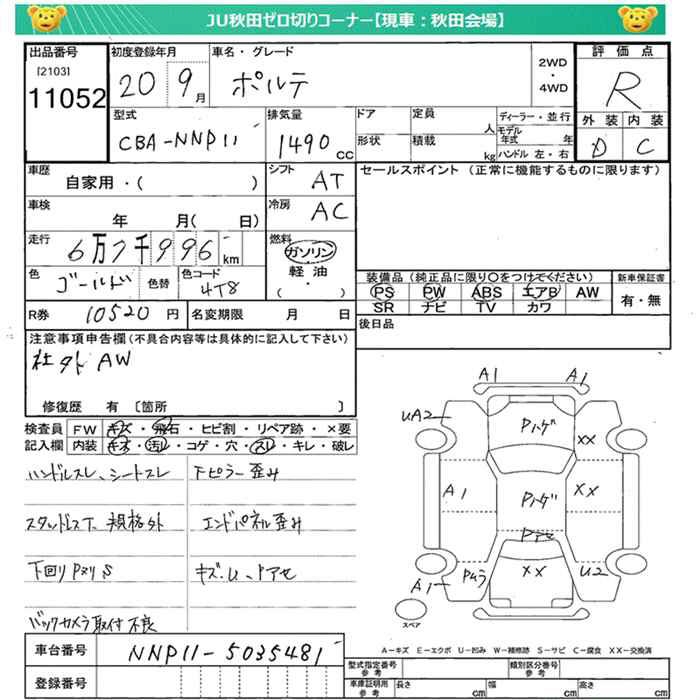 JU秋田ゼロ切りコーナー【現車：秋田会場】
出品番号
[2103]
11052
初度登録年月
20 9月
車名・グレード
ポルテ
2WD
・
4WD
評価点
R
外装 内装
D C
型式
CBA-NNP11
排気量
1490 CC
ドア
形状
定員
人
積載
kg
ディーラー・並行
モデル年式 年
ハンドル 左・右
車歴
自家用・( )
シフト
AT
セールスポイント（正常に機能するものに限ります）
車検
年 月( 日)
冷房
AC
走行
6万7千996km
燃料
ガソリン
軽油
・
( )
色
ゴールド
色替
色コード
4T8
装備品（純正品に限り○をつけてください）
PS PW ABS エアB AW
SR ナビ TV カワ
新車保証書
有・無
R券 10520 円
名変期限 月 日
後日品
注意事項申告欄(不具合内容等は具体的に記入して下さい)
社外AW
修復歴 有〔箇所 〕
検査員記入欄
FW キズ・飛石・ヒビ割・リペア跡・×要
内装 キズ・汚レ・コゲ・穴・スレ・キレ・破レ
ハンドルスレ、シートスレ
スタッドレス下、規格外
下回りPヌリS
バックカメラ取付不良
下ピラー歪み
エンドパネル歪み
キズ・U・Pアセ
A1 A1
UA2 Pハゲ XX
A1 Pハゲ XX
Pアセ
A1 Pムラ XX U2
スペア
A－キズ E－エクボ U－凹み W－補修跡 S－サビ C－腐食 XX－交換済
車台番号
NNP11-5035481
登録番号
型式指定番号
参考
類別区分番号
参考
車庫証明用
参考
長さ cm
幅 cm
高さ cm